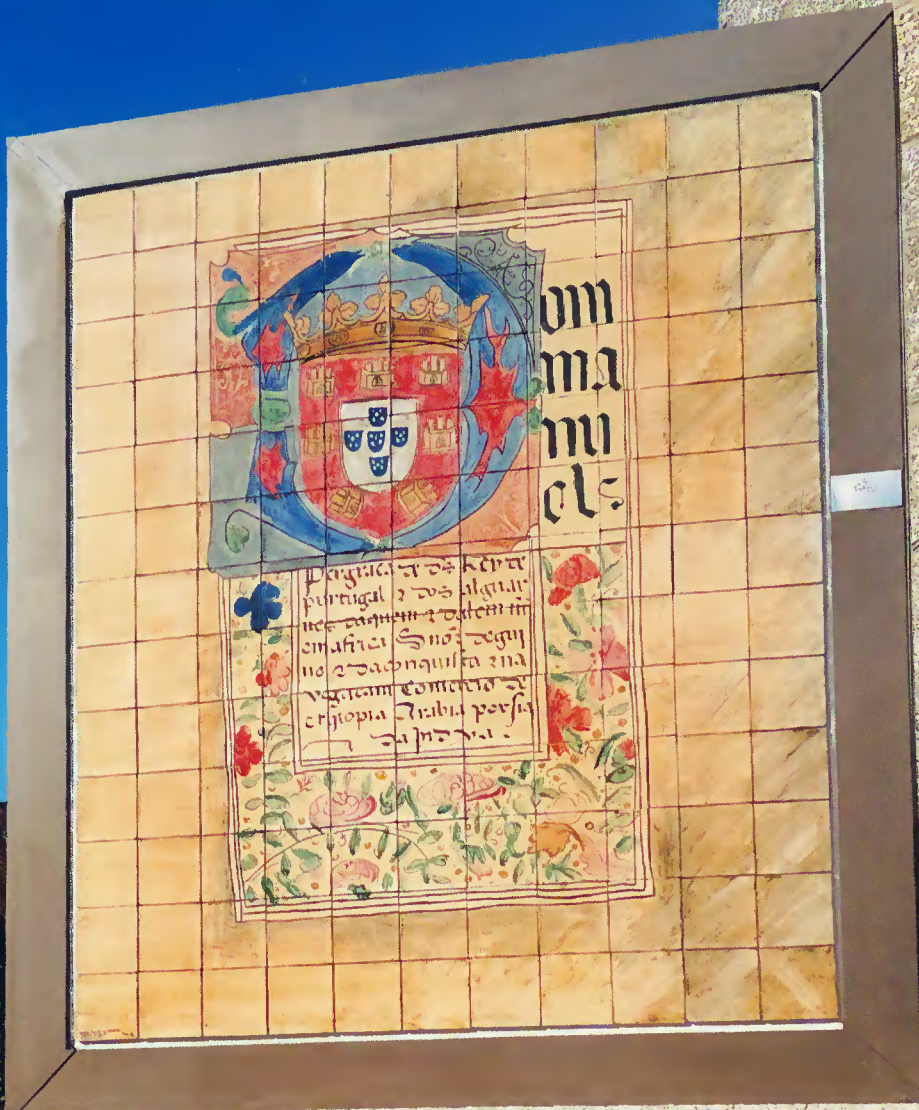 Dom
ma
nu
els
Per graça de d̃s Rey de
portugal z dos algar
ues daquem z dalem m̃
em africa Snõr de gui
ne z da conquista z na
vegaçam Comercio de
ethiopia Arabia persia
da Jndya.